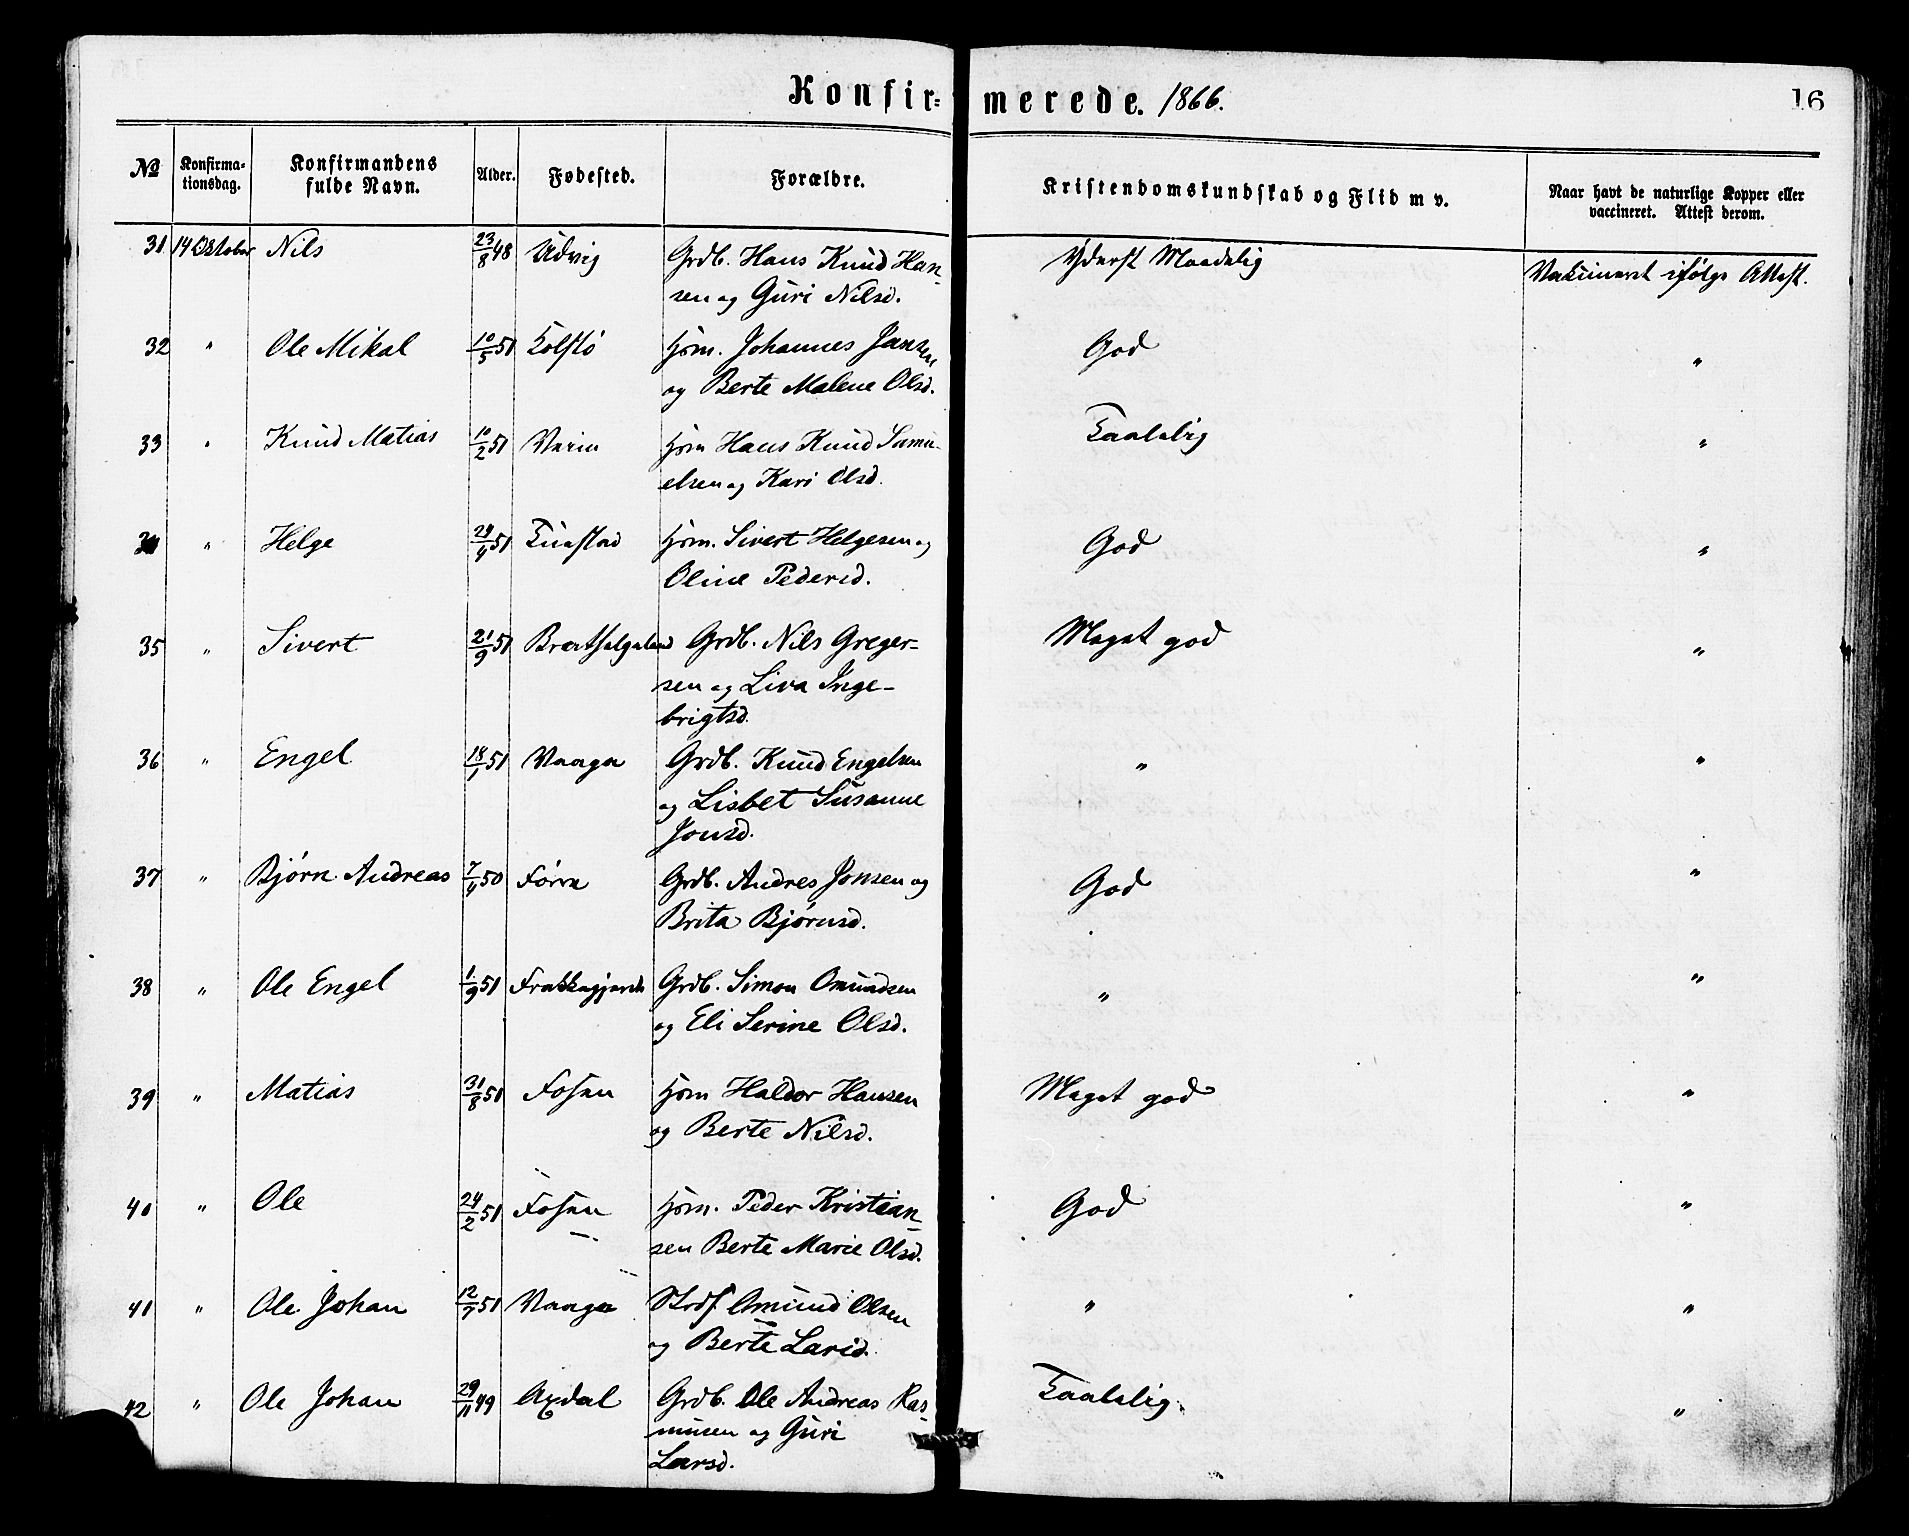 Konfir= merede. 1866.
16
No Konfirma-tionsdag. Konfirmandens fulde Navn. Alder. Fødested. Forældre. Kristendomskundskab og Flid m v. Naar havt de naturlige Kopper eller vaccineret. Attest derom.
31 14 Oktober Nils 23/8 48 Udvig Grdb. Hans Knud Han- Yderst Maadelig Vakcineret ifølge Attest.
sen og Guri Nilsd.
32 " Ole Mikal 10/5 51 Kolstø Hsm. Johannes Jansen God "
og Berte Malene Olsd.
33 " Knud Matias 10/2 51 Hsm Hans Knud Samu- Taalelig "
elsen og Kari Olsd.
34 " Helge /4 51 Hsm. Sivert Helgesen og God "
Oline Pedersd.
35 " Sivert 21/9 51 Bratthelgeland Grdb. Nils Greger- Meget god "
sen og Liva Inge-
brigtsd.
36 " Engel 18/1 51 Vaage Grdb. Knud Engelsen " "
og Lisbet Susanne
Jonsd.
37 " Bjørn Andreas 7/4 50 Førre Grdb. Andres Jonsen og God "
Brita Bjørnsd.
38 " Ole Engel 1/9 51 Frakkagjerde Grdb. Simon Omundsen " "
og Eli Serine Olsd.
39 " Matias 31/8 51 Fosen Hsm Haldor Hansen Meget god "
og Berte Nilsd.
40 " Ole 24/2 51 Fosen Hsm. Peder Kristian- God "
sen Berte Marie Olsd.
41 " Ole Johan 12/7 51 Vaage Strdf. Omund Olsen " "
og Berte Larsd.
42 " Ole Johan 29/11 49 Axdal Grdb. Ole Andreas Ras- Taalelig "
musen og Guri
Larsd.